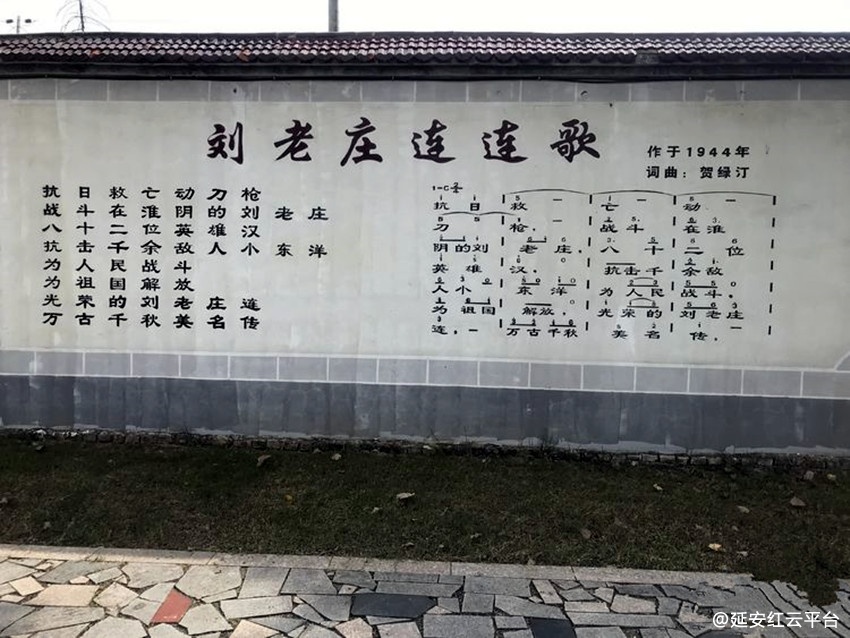 刘老庄连连歌
作于1944年
词曲：贺绿汀
抗日救亡动刀枪
战斗在淮阴的刘老庄
八十二位英雄汉
抗击千余敌人小东洋
为人民战斗
为祖国解放
光荣的刘老庄连
万古千秋美名传
抗日 救 － 亡 － 动 －
刀 － 枪， － 战斗 在淮
阴的刘 老庄， 八十 二位
英雄 汉， 抗击千 余敌
人小 东洋 为人民 战斗，
为祖国 解放， 光荣的 刘老庄
连，－ 万古千秋 美名 传，－
@延安红云平台